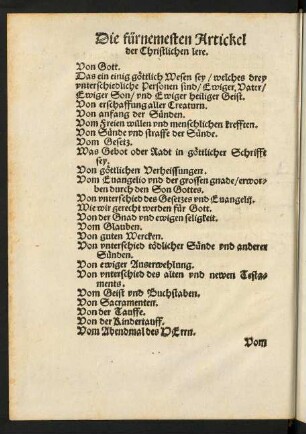 Die fürnemesten Artickel
der Christlichen lere.
Von Gott.
Das ein einig göttlich Wesen sey / welches drey
vnterschiedliche Personen sind / Ewiger, Vater /
Ewiger Son / vnd Ewiger heiliger Geist.
Von erschaffung aller Creaturn.
Von anfang der Sünden.
Vom Freien willen vnd menschlichen krefften.
Von Sünde vnd straffe der Sünde.
Vom Gesetz.
Was Gebot oder Radt in göttlicher Schrifft
sey.
Von göttlichen Verheissungen.
Vom Euangelio vnd der grossen gnade / erwor-
ben durch den Son Gottes.
Von vnterschied des Gesetzes vnd Euangelij.
Wie wir gerecht werden für Gott.
Von der Gnad vnd ewigen seligkeit.
Vom Glauben.
Von guten Wercken.
Von vnterschied tödlicher Sünde vnd anderer
Sünden.
Von ewiger Auserwehlung.
Von vnterschied des alten vnd newen Testa-
ments.
Vom Geist vnd Buchstaben.
Von Sacramenten.
Von der Tauffe.
Von der Kindertauff.
Vom Abendmal des HErrn.
Vom